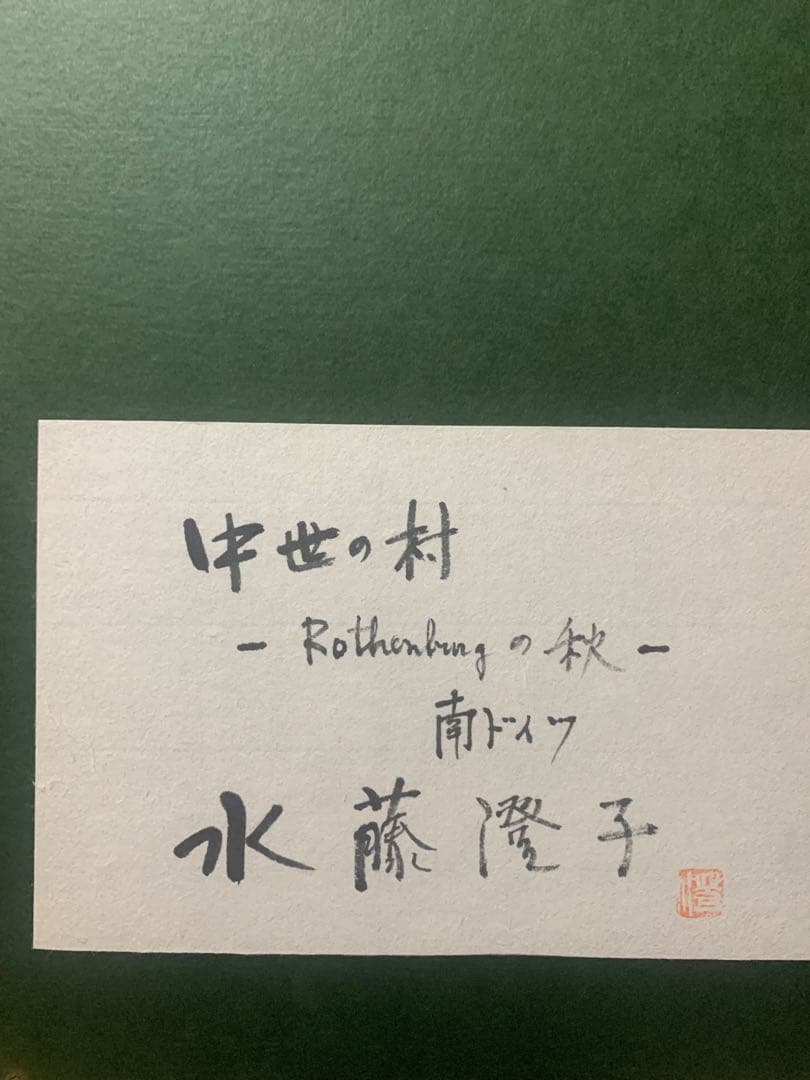 中世の村
- Rothenburgの秋 -
南ドイツ
水藤澄子
澄